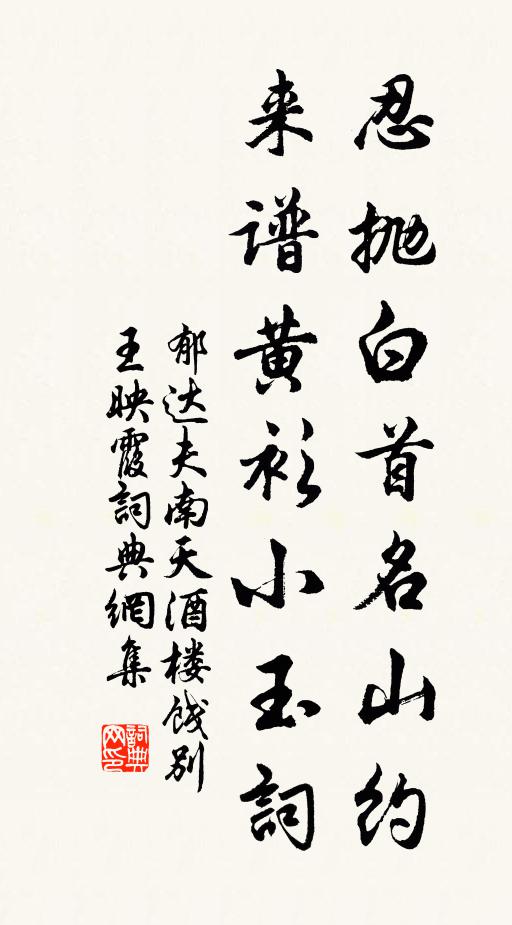 忍抛白首名山约
来谱黄衫小玉詞
郁达夫南天酒楼饯别
王映霞詞典網集
詞典网印